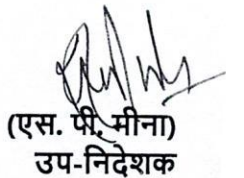 (एस. पी. मीना)
उप-निदेशक